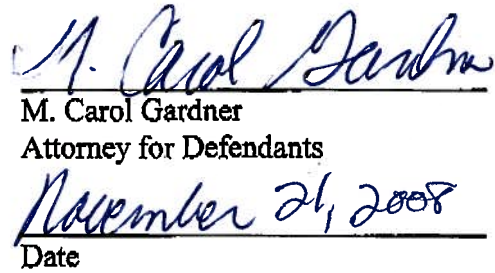 M. Carol Gardner
M. Carol Gardner
Attorney for Defendants
November 21, 2008
Date